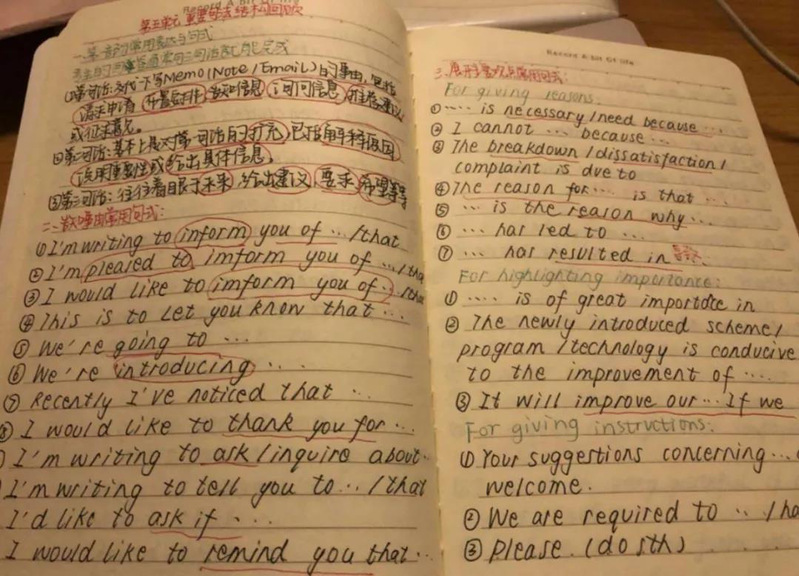 第三单元 重要句式结构回顾
常用表达与句式
句话: Memo(Note/Email)的事由,包括
请求申请 布置安排 告知信息 询问信息 推卷建议
或征求意见。
②第二句话:基本上是对第一句话的扩充,已括解释原因
说明重要性或给出具体信息,
③第三句话:往往着眼于未来,给出建议,要求,希望等等
二、 常用句式:
①I'm writing to inform you of … /that
②I'm pleared to imform you of … /tha
③I would like to imform you of … /tha
④This is to let you know that …
⑤We're going to …
⑥We're introducing …
⑦Recently I've noticed that …
⑧I would like to thank you for …
I'm writing to ask /inquire about …
I'm writing to tell you to … /that
I'd like to ask if …
I would like to remind you that …
Record A bit Of life
三. 常用句式:
For giving reasons:
①…… is necessary/need because …
②I cannot … because …
③The breakdown /dissatisfaction/
complaint is due to
④The reason for … is that …
⑤… is the reason why …
⑥… has led to …
⑦… has resulted in
For highlighting importance:
①…. is of great importatce in
②The newly introduced scheme/
program /technology is conducive
to the improvement of …
③It will improve our … If we
For giving instructions:
①Your suggestions concerning …
welcome.
②We are required to … /ha
③please (do sth) …